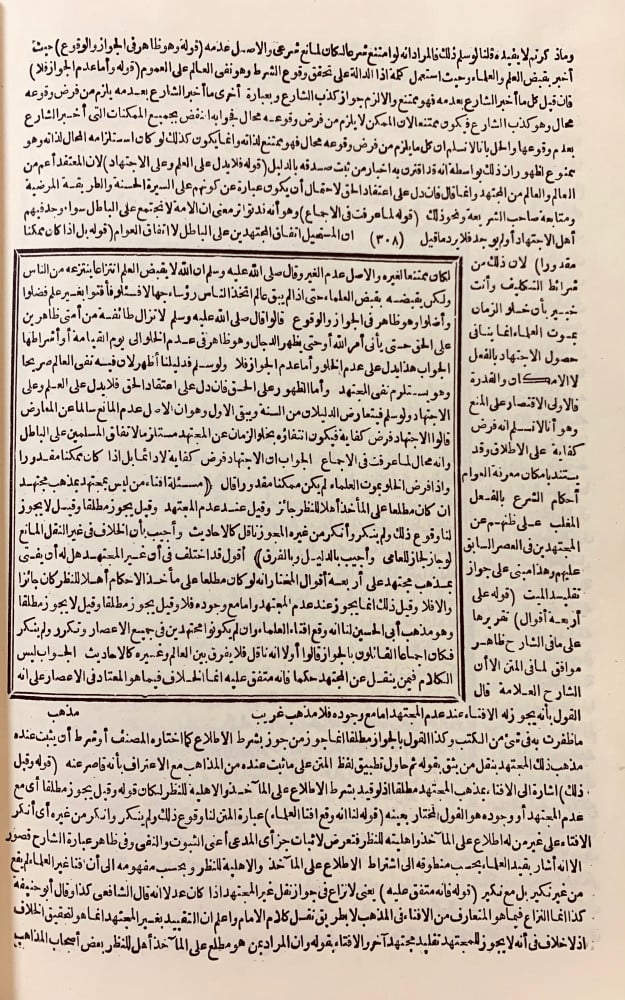 وما ذكرتم لا يفيده قلنا لو سلم ذلك فالمراد انه لو امتنع شرعا لكان لمانع شرعى والاصل عدمه (قوله وهو ظاهر فى الجواز والوقوع) حيث
أخبر بقبض العلم والعلماء وحيث استعمل كلمة اذا الدالة على تحقق وقوع الشرط وهو نفى العالم على العموم (قوله وأما عدم الجواز فلا)
فان قيل كل ما أخبر الشارع بعدمه فهو ممتنع والا لزم جواز كذب الشارع وبعبارة أخرى ما أخبر الشارع بعدمه يلزم من فرض وقوعه
محال وهو كذب الشارع فيكون ممتنعا لان الممكن لا يلزم من فرض وقوعه محال فجوابه انه نقض بجميع الممكنات التى أخبر الشارع
بعدم وقوعها والحل بأنا لا نسلم ان كل ما يلزم من فرض وقوعه محال فهو ممتنع لذاته وانما يكون كذلك لو كان استلزامه المحال لذاته وهو
ممنوع اظهور ان ذلك بواسطة انه قد اقترن به اخبار من ثبت صدقه بالدليل (قوله فلا يدل على العلم وعلى الاجتهاد) لان المعتقد أعم من
العالم والعالم من المجتهد وانما قال فان دل على اعتقاد الحق لاحتمال أن يكون عبارة عن كونهم على السيرة الحسنة والطريقة المرضية
ومتابعة صاحب الشريعة ونحو ذلك (قوله لما عرفت فى الاجماع) وهو أنه قد تواتر معنى ان الامة لا تجتمع على الباطل سواء وجد فيهم
أهل الاجتهاد أو لم يوجد فلا يرد ما قيل (٣٠٨) ان المستحيل اتفاق المجتهدين على الباطل لا اتفاق العوام (قوله بل اذا كان ممكنا
مقدورا) لان ذلك من
شرائط التكليف وأنت
خبير بأن خلو الزمان
بموت العلماء انما ينافى
حصول الاجتهاد بالفعل
لا الامكان والقدرة
فالاولى الاقتصار على المنع
وهو أنا لا نسلم انه فرض
كفاية على الاطلاق وقد
يستند بامكان معرفة العوام
أحكام الشرع بالفعل
المغلب على ظنهم عن
المجتهدين فى العصر السابق
عليهم وهذا مبنى على جواز
تقليد الميت (قوله على
أربعة أقوال) تقريرها
على ما فى الشارح ظاهر
موافق لما فى المتن الا أن
الشارح العلامة قال
لكان ممتنعا لغيره والاصل عدم الغير وقال صلى الله عليه وسلم ان الله لا يقبض العلم انتزاعا ينتزعه من الناس
ولكن يقبضه بقبض العلماء حتى اذا لم يبق عالم اتخذ الناس رؤساء جهالا فسئلوا فأفتوا بغير علم فضلوا
وأضلوا وهو ظاهر فى الجواز والوقوع قالوا قال صلى الله عليه وسلم لا تزال طائفة من أمتى ظاهرين
على الحق حتى يأتى أمر الله أو حتى يظهر الدجال وهو ظاهر فى عدم الخلو الى يوم القيامة أو أشراطها
الجواب هذا يدل على عدم الخلو وأما عدم الجواز فلا ولو سلم فدليلنا أظهر لان فيه نفى العالم صريحا
وهو يستلزم نفى المجتهد وأما الظهور على الحق فان دل على اعتقاد الحق فلا يدل على العلم وعلى
الاجتهاد ولو سلم فيتعارض الدليلان من السنة ويبقى الاول وهو ان الاصل عدم المانع سالما عن المعارض
قالوا الاجتهاد فرض كفاية فيكون انتفاؤه بخلو الزمان عن المجتهد مستلزما لاتفاق المسلمين على الباطل
وانه محال لما عرفت فى الاجماع الجواب ان الاجتهاد فرض كفاية لا دائما بل اذا كان ممكنا مقدورا
واذا فرض الخلو بموت العلماء لم يكن ممكنا مقدورا قال ﴿مسئلة افتاء من ليس بمجتهد بمذهب مجتهد
ان كان مطلعا على المأخذ أهلا للنظر جائز وقيل عند عدم المجتهد وقيل يجوز مطلقا وقيل لا يجوز
لنا وقوع ذلك ولم ينكر وأنكر من غيره المجوز ناقل كالاحاديث وأجيب بأن الخلاف فى غير النقل المانع
لو جاز لجاز للعامى وأجيب بالدليل وبالفرق﴾ أقول قد اختلف فى أن غير المجتهد هل له أن يفتى
بمذهب مجتهد على أربعة أقوال المختار انه لو كان مطلعا على مأخذ الاحكام أهلا للنظر كان جائزا
والا فلا وقيل ذلك انما يجوز عند عدم المجتهد وأما مع وجوده فلا وقيل يجوز مطلقا وقيل لا يجوز مطلقا
وهو مذهب أبى الحسين لنا انه وقع افتاء العلماء وان لم يكونوا مجتهدين فى جميع الاعصار وتكرر ولم ينكر
فكان اجماعا القائلون بالجواز قالوا أولا انه ناقل فلا يفرق بين العالم وغيره كالاحاديث الجواب ليس
الكلام فيمن ينقل عن المجتهد حكما فانه متفق عليه انما الخلاف فيما هو المعتاد فى الاعصار على انه
القول بأنه يجوز له الافتاء عند عدم المجتهد اما مع وجوده فلا مذهب غريب مذهب
ما ظفرت به فى شئ من الكتب وكذا القول بالجواز مطلقا انما جوز من جوز بشرط الاطلاع كما اختاره المصنف أو شرط أن يثبت عنده
مذهب ذلك المجتهد بنقل من يثق بقوله ثم حاول تطبيق لفظ المتن على ما ثبت عنده من المذاهب مع الاعتراف بأنه قاصر عنه (قوله وقيل
ذلك) اشارة الى الافتاء بمذهب المجتهد مطلقا اذ لو قيد بشرط الاطلاع على المآخذ والاهلية للنظر لكان قوله وقيل يجوز مطلقا أى مع
عدم المجتهد أو وجوده هو القول المختار بعينه (قوله لنا انه وقع افتاء العلماء) عبارة المتن لنا وقوع ذلك ولم ينكر وانكر من غيره أى أنكر
الافتاء على غير من له اطلاع على المآخذ واهليته للنظر فتعرض لاثبات جزأى المدعى أعنى الثبوت والنفى وفى ظاهر عبارة الشارح قصور
الا انه أشار بقيد العلماء بحسب منطوقه الى اشتراط الاطلاع على المآخذ والاهلية للنظر وبحسب مفهومه الى أن افتاء غير العلماء لم يقع
من غير نكير بل مع نكير (قوله فانه متفق عليه) يعنى لا نزاع فى جواز نقل غير المجتهد اذا كان عدلا انه قال الشافعى كذا وقال أبو حنيفة
كذا انما النزاع فيما هو المتعارف من الافتاء فى المذهب لا بطريق نقل كلام الامام واعلم ان التقييد بغير المجتهد انما هو لتحقيق الخلاف
اذ لا خلاف فى أنه لا يجوز للمجتهد تقليد مجتهد آخر والافتاء بقوله وان المراد بمن هو مطلع على المآخذ أهل للنظر بعض أصحاب المذاهب